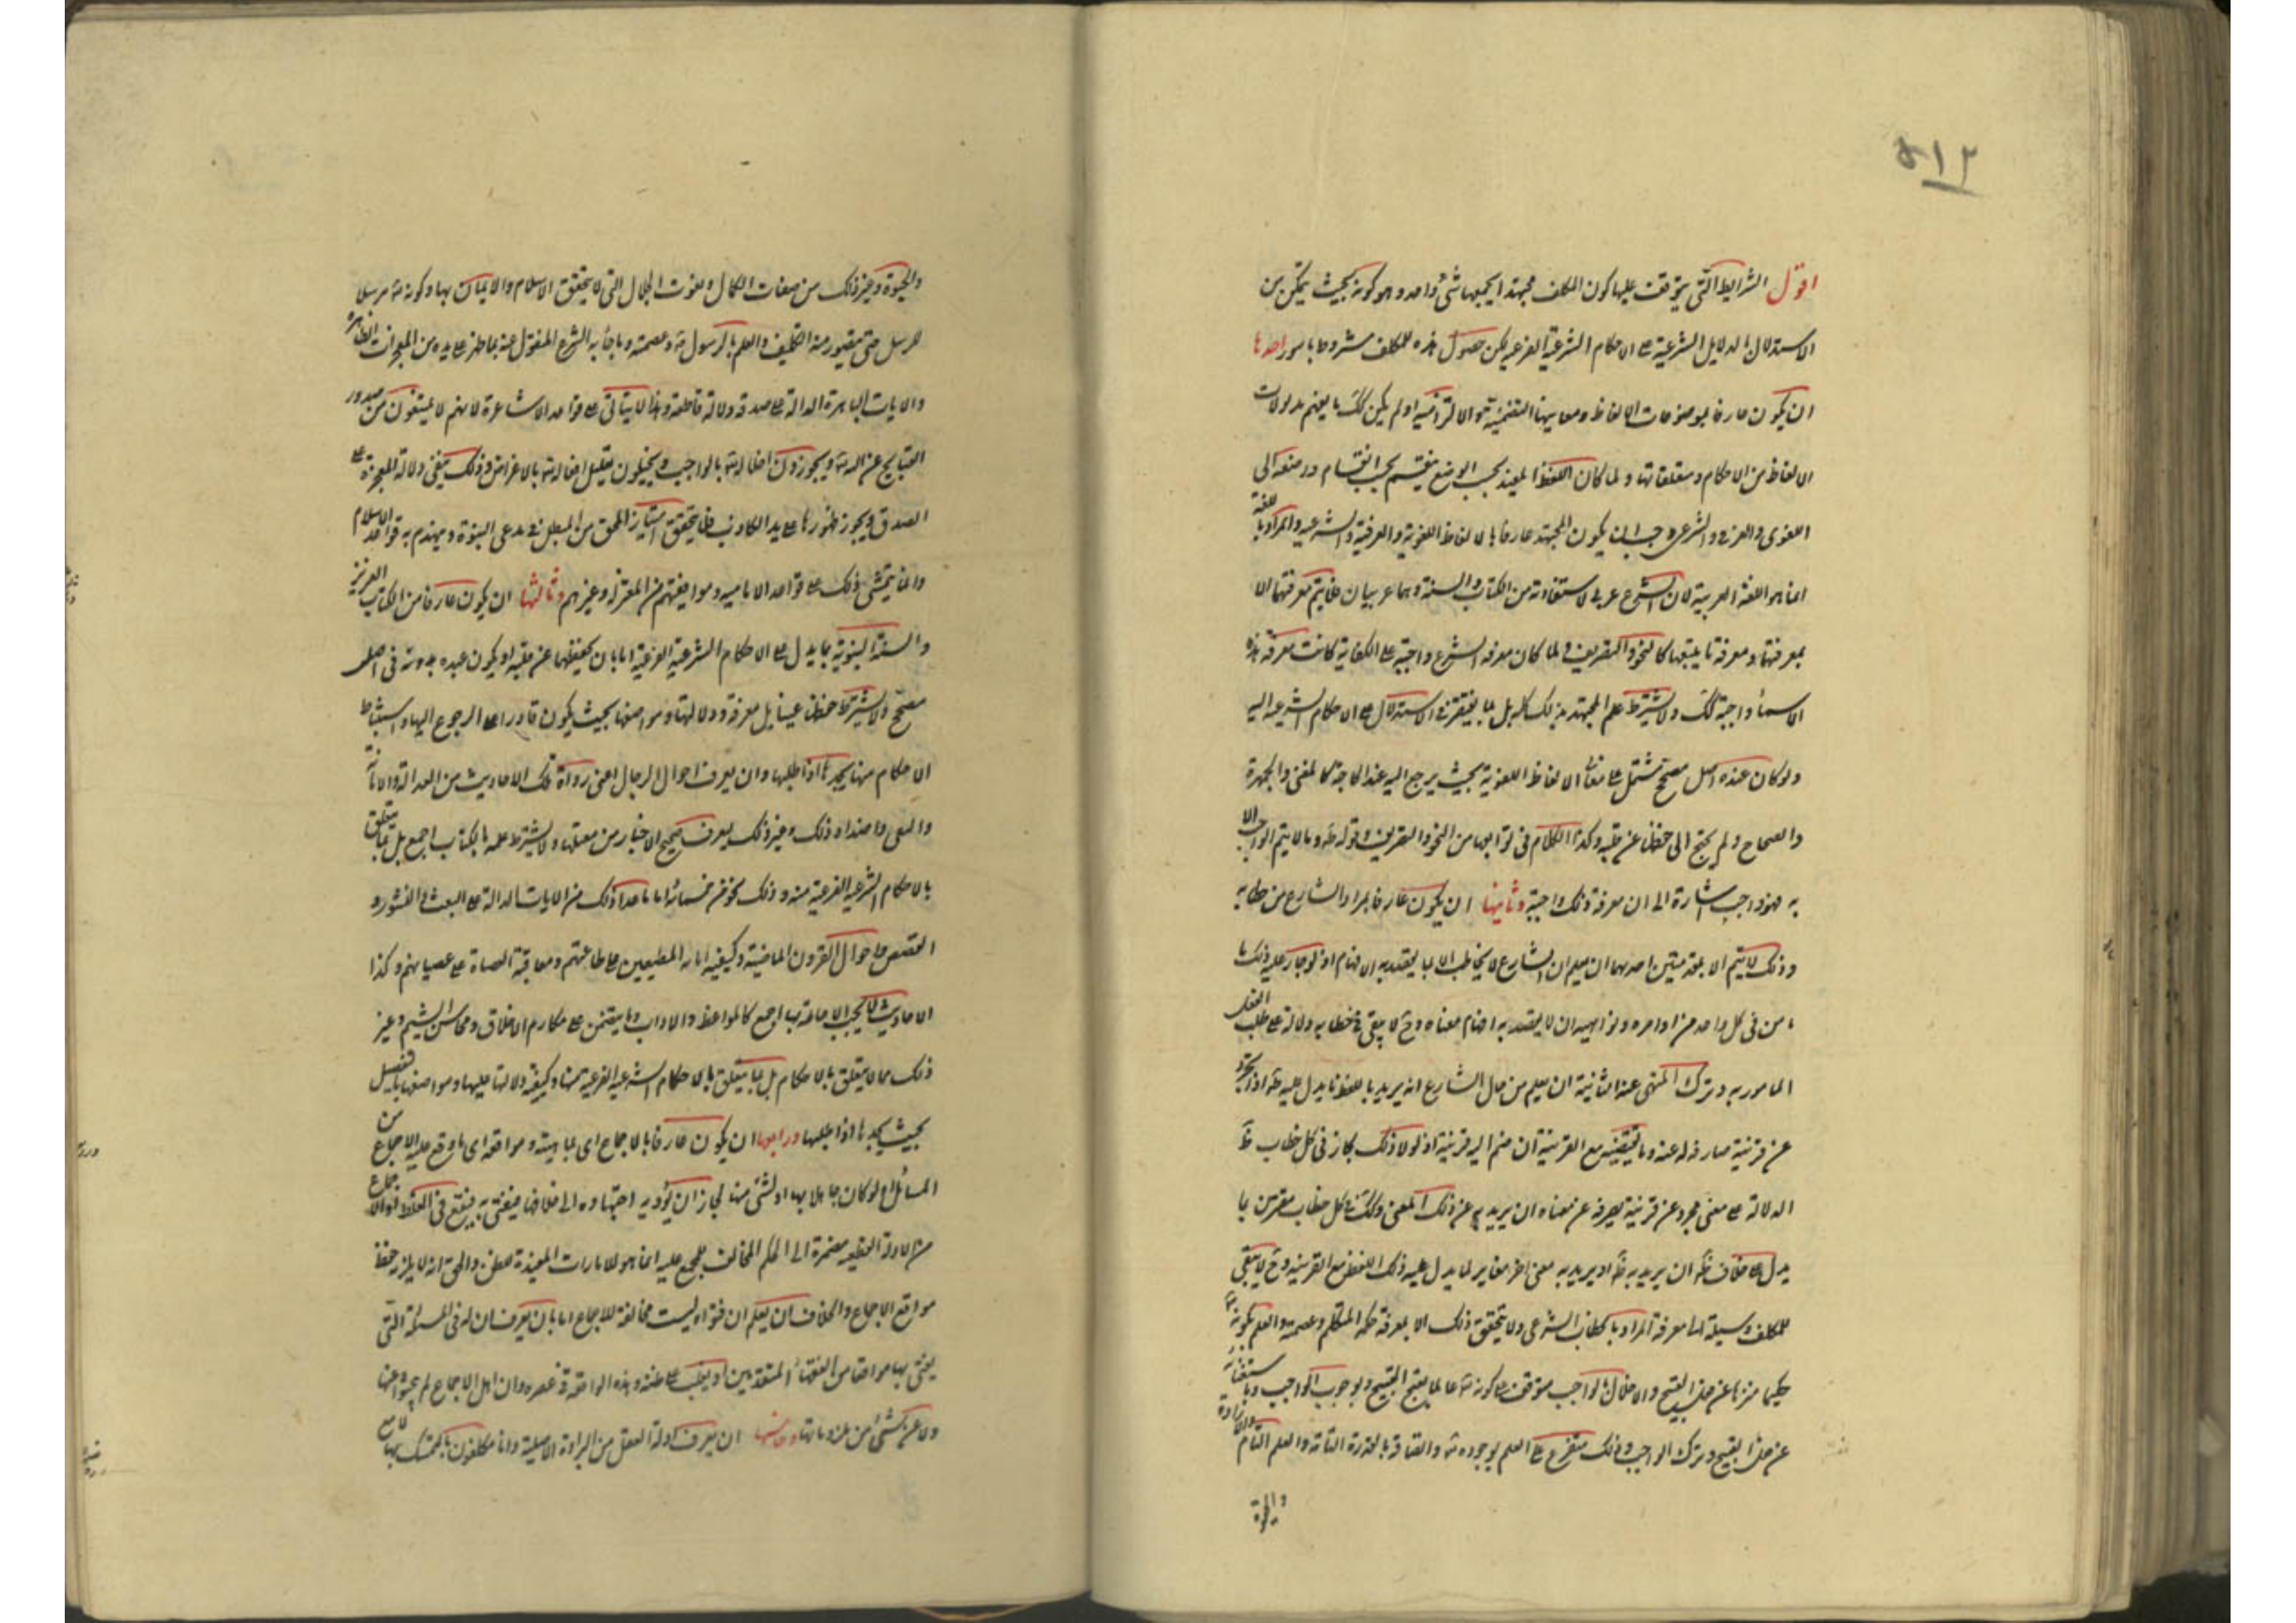 ٥١٢
اقول الشرايط التي يتوقف عليها كون المكلف مجتهدا يجمعها شئ واحد وهو كونه بحيث يتمكن من
الاستدلال بالدلايل الشرعية على الاحكام الشرعية الفرعية لكن حصول هذه للمكلف مشروط بامور احدها
ان يكون عارفا بموضوعات الالفاظ ومعانيها التضمنية والالتزامية اذ لو لم يكن كك لم يفهم مدلولات
الالفاظ من الاحكام ومتعلقاتها ولما كان اللفظ المفيد بحسب الوضع ينقسم بحسب انقسام وضعه الى
اللغوى والعرفى والشرعى وجب ان يكون المجتهد عارفا بالالفاظ اللغوية والعرفية والشرعية والمراد باللغة
انما هو اللغة العربية لان الشرع عربى لاستفادته من الكتاب والسنة وهما عربيان فلا يتم معرفتهما الا
بمعرفتها ومعرفة ما يتبعها كالنحو والتصريف ولما كان معرفة الشرع واجبة على الكفاية كانت معرفة هذه
الاسماء واجبة كك ولا يشترط علم المجتهد بذلك كله بل بما يفتقر فى الاستدلال على الاحكام الشرعية اليه
ولو كان عنده اصل مصحح مشتمل على معانى الالفاظ اللغوية بحيث يرجع اليه عند الحاجة كالمغنى والجمهرة
والصحاح ولم يحتج الى حفظها عن قلبه وكذا الكلام فى توابعها من النحو والتصريف وقوله طه وما لا يتم الواجب الا
به فهو واجب اشارة الى ان معرفة ذلك واجبة وثانيها ان يكون عارفا بمراد الشارع من خطابه
وذلك لا يتم الا بمقدمتين احدهما ان يعلم ان الشارع لا يخاطب الا بما يقصد به الافهام اذ لو جاز عليه ذلك لم
نامن فى كل واحد من اوامره ونواهيه ان لا يقصد به افهام معناه وح لا يبقى فى خطابه دلالة على طلب الفعل
المامور به وترك المنهى عنه الثانية ان يعلم من حال الشارع انه يريد باللفظ ما يدل عليه ظه اذا تجرد
عن قرينة صارفة له عنه وما يقتضيه مع القرينة ان ضم اليه قرينة اذ لولا ذلك لجاز فى كل خطاب ظ
الدلالة على معنى مجرد عن قرينة يصرفه عن معناه ان يريد به غير ذلك المعنى وكك فى كل خطاب مقترن بما
يدل على خلاف ظه ان يريد به ظه او يريد به معنى اخر مغاير لما يدل عليه ذلك اللفظ مع القرينة وح لا يبقى
للمكلف وسيلة الى معرفة المراد بالخطاب الشرعى ولا يتحقق ذلك الا بمعرفة حكمة المتكلم وعصمته والعلم بكونه تع
حكيما منزها عن فعل القبيح والاخلال بالواجب متوقف على كونه تع عالما بقبح القبيح وبوجوب الواجب وباستغنائه
عن فعل القبيح وترك الواجب وذلك متفرع على العلم بوجوده تع واتصافه بالقدرة التامة والعلم التام والارادة
والحيوة
والحيوة وغير ذلك من صفات الكمال ونعوت الجلال التى لا يتحقق الاسلام والايمان بها وكونه تع مرسلا
للرسل حتى يتصور منه التكليف والعلم بالرسول ص وعصمته وما جاء به الشرع المنقول عنه بما ظهر على يده من المعجزات الظاهرة
والايات الباهرة الدالة على صدقه دلالة قاطعة وهذا لا يتاتى على قواعد الاشاعرة لانهم لا يمنعون من صدور
القبايح عن الله تع ويجوزون اخلاله بالواجب ويحيلون تعليل افعاله تع بالاغراض وذلك ينفى دلالة المعجزة على
الصدق ويجوز ظهورها على يد الكاذب فلا يتحقق امتياز المحق من المبطل فى مدعى النبوة وينهدم به قواعد الاسلام
وانما يتمشى ذلك على قواعد الامامية وموافقيهم من المعتزلة وغيرهم وثالثها ان يكون عارفا من الكتاب العزيز
والسنة النبوية بما يدل على الاحكام الشرعية الفرعية اما بان يحفظها عن قلبه او يكون عنده مدونة فى اصل
مصحح ولا يشترط حفظها عينا بل معرفة دلالتها ومواضعها بحيث يكون قادرا على الرجوع اليها واستنباط
الاحكام منها يجدها اذا طلبها وان يعرف احوال الرجال اعنى رواة تلك الاحاديث من العدالة والامانة
والتقى واضداد ذلك وغير ذلك ليعرف صحيح الاخبار من معتلها ولا يشترط علمه بالكتاب اجمع بل بما يتعلق
بالاحكام الشرعية الفرعية منه وذلك نحو من خمسمائة اما ما عدا ذلك من الايات الدالة على البعث والنشور و
القصص واحوال القرون الماضية وكيفية اثابة المطيعين على طاعتهم ومعاقبة العصاة على عصيانهم وكذا
الاحاديث لا يجب الاحاطة بها اجمع كالمواعظ والاداب وما يتضمن على مكارم الاخلاق ومحاسن الشيم وغير
ذلك مما لا يتعلق بالاحكام بل بما يتعلق بالاحكام الشرعية الفرعية منها وكيفية دلالتها عليها ومواضعها بالتفصيل
بحيث يجدها اذا طلبها ورابعها ان يكون عارفا بالاجماع اى بماهيته ومواقعه اى ما وقع عليه الاجماع من
المسائل اذ لو كان جاهلا بها او لشئ منها لجاز ان يؤديه اجتهاده الى خلافها فيفتى به فيقع فى الغلط اذ الاجماع
من الادلة القطعية مفضية الى الحكم المخالف للمجمع عليه انما هو الامارات المفيدة للظن والحق انه لا يلزم حفظ
مواقع الاجماع والخلاف بل ان يعلم ان فتواه ليست مخالفة للاجماع اما بان يعرف ان له فى المسئلة التى
يفتى بها موافقا من الفقهاء المتقدمين او يغلب على ظنه وهذه الواقعة فى عصره وان اهل الاجماع لم يبحثوا عنها
ولا عن شئ من ملزوماتها وخامسها ان يعرف ادلة العقل من البراءة الاصلية وانا مكلفون بالتمسك بها